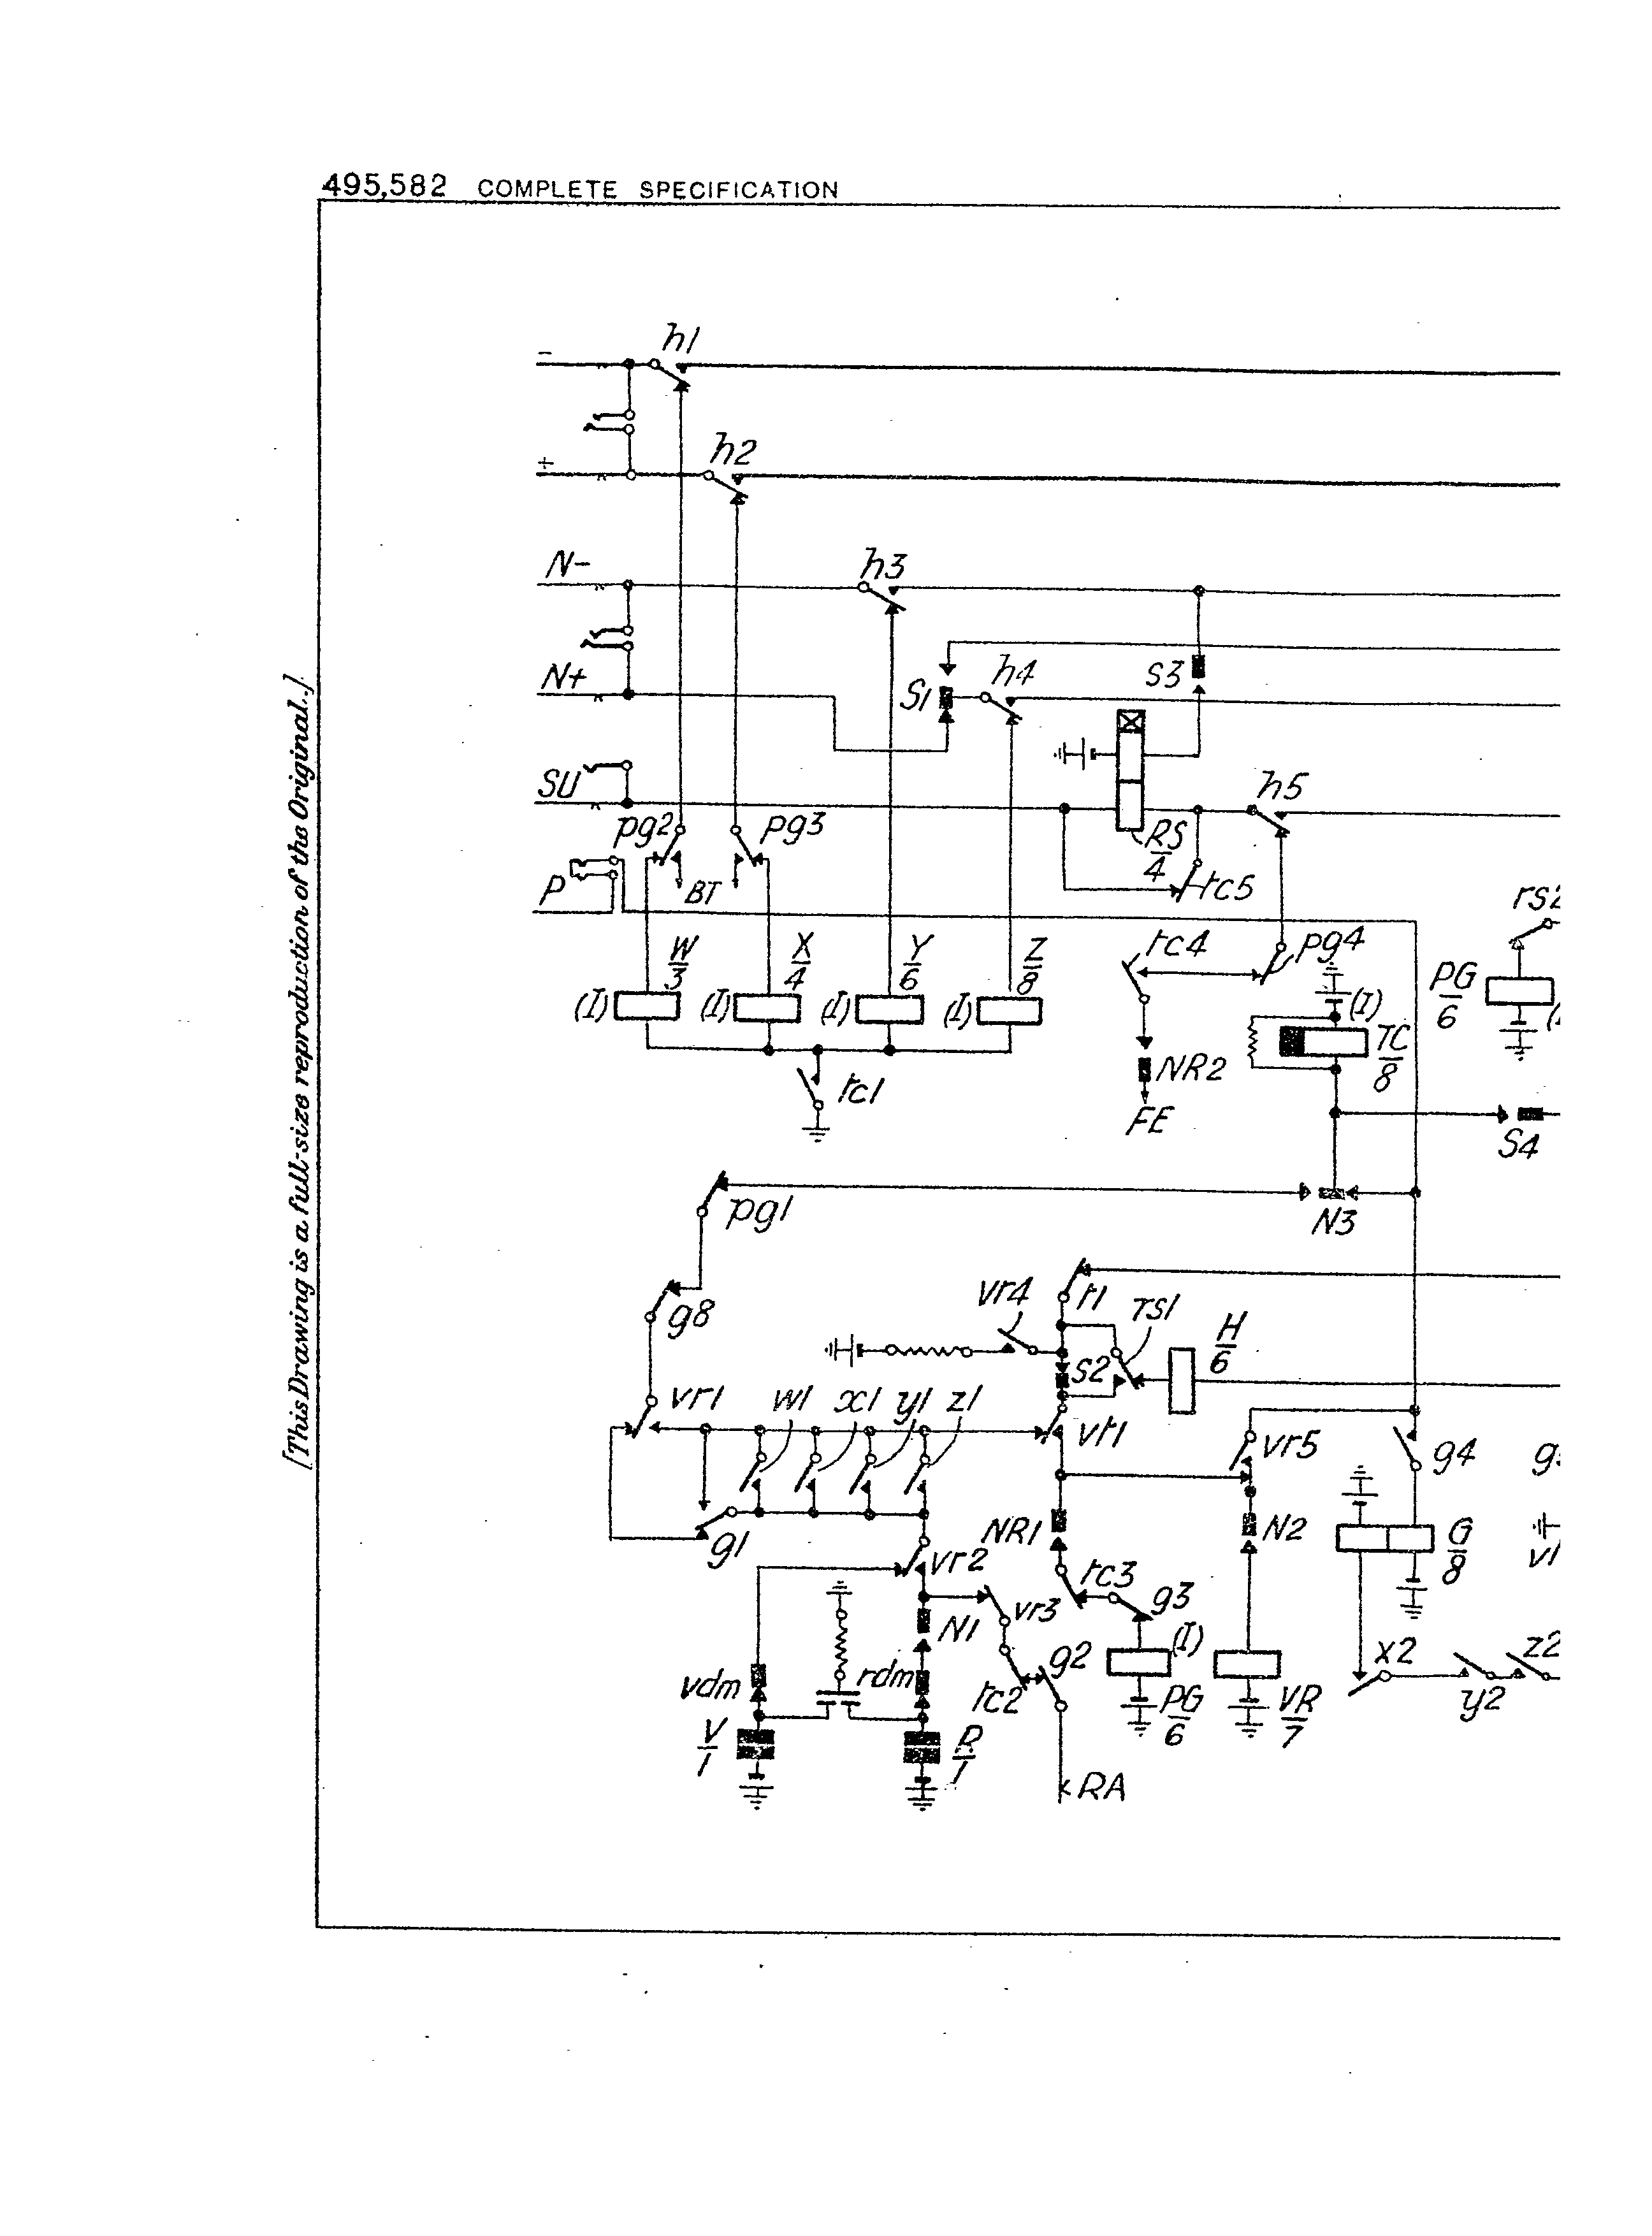 495,582 COMPLETE SPECIFICATION
[This Drawing is a full-size reproduction of the Original.]
h1
−
h2
+
N−
h3
N+
S1
h4
S3
SU
h5
pg2
pg3
RS
4
P
BT
tc5
rs2
W
3
X
4
Y
6
Z
8
tc4
pg4
PG
6
(I)
(I)
(I)
(I)
(I)
TC
8
tc1
NR2
FE
S4
pg1
N3
g8
vr4
t1
rs1
H
6
S2
vr1
w1
x1
y1
z1
vt1
vr5
g4
g1
NR1
N2
G
8
vr2
tc3
g3
N1
vr3
(I)
vdm
rdm
tc2
g2
x2
y2
z2
V
1
R
1
PG
6
VR
7
RA